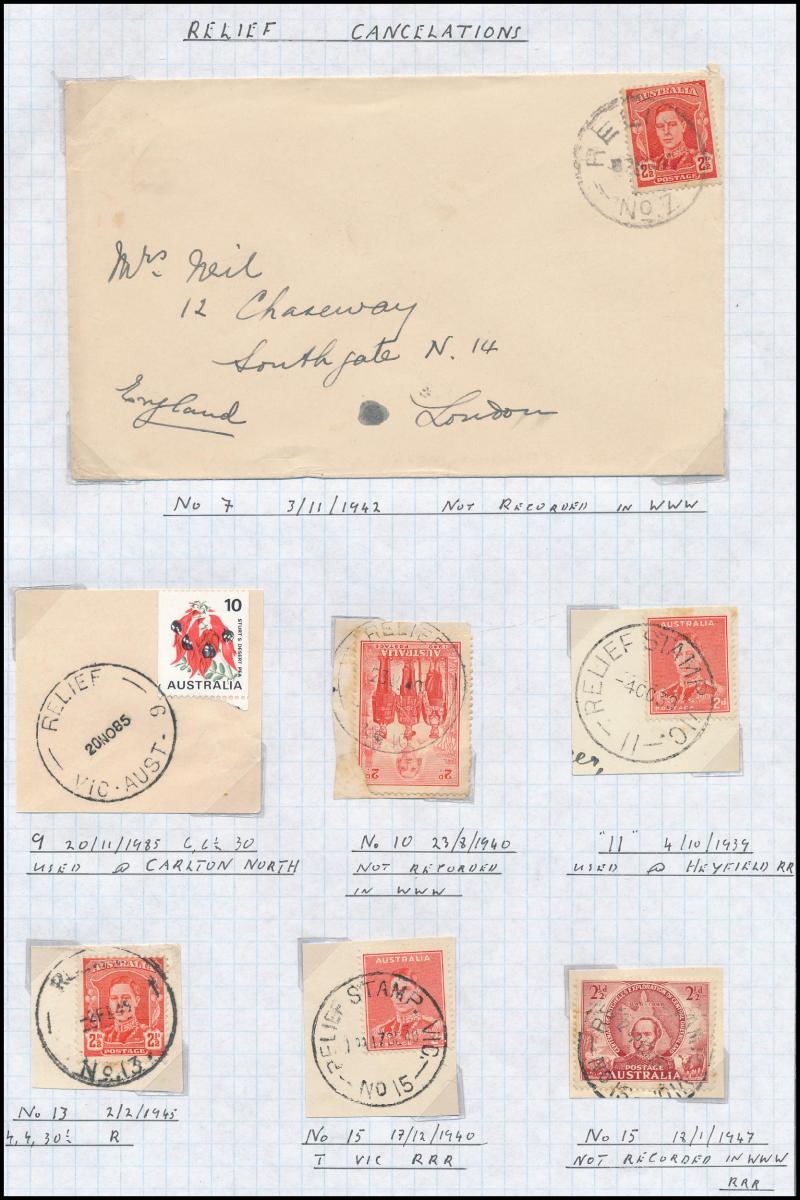 RELIEF CANCELATIONS
AUSTRALIA
2½d 2½d
POSTAGE
RE
No. 7
Mrs Neil
12 Chaseway
Southgate N. 14
England London
No 7 3/11/1942 NOT RECORDED IN WWW
10
STURT'S DESERT PEA
AUSTRALIA
RELIEF 9
20NO85
VIC·AUST·
RELIEF
AUSTRALIA
1940 POSTAGE
2d 2d
AUSTRALIA
2d
POSTAGE
RELIEF STAMP VIC.
-4OC39
11
9 20/11/1985 C, C½ 30
USED @ CARLTON NORTH
No 10 23/8/1940
NOT RECORDED
IN WWW
"11" 4/10/1939
USED @ HEYFIELD RR
AUSTRALIA
2½d 2½d
POSTAGE
No. 13
AUSTRALIA
RELIEF STAMP VIC.
17DE40
No 15
2½d 2½d
POSTAGE
AUSTRALIA
No 15
No 13 2/2/1945
4, 4, 30½ R
No 15 17/12/1940
T VIC RRR
No 15 12/1/1947
NOT RECORDED IN WWW
RRR